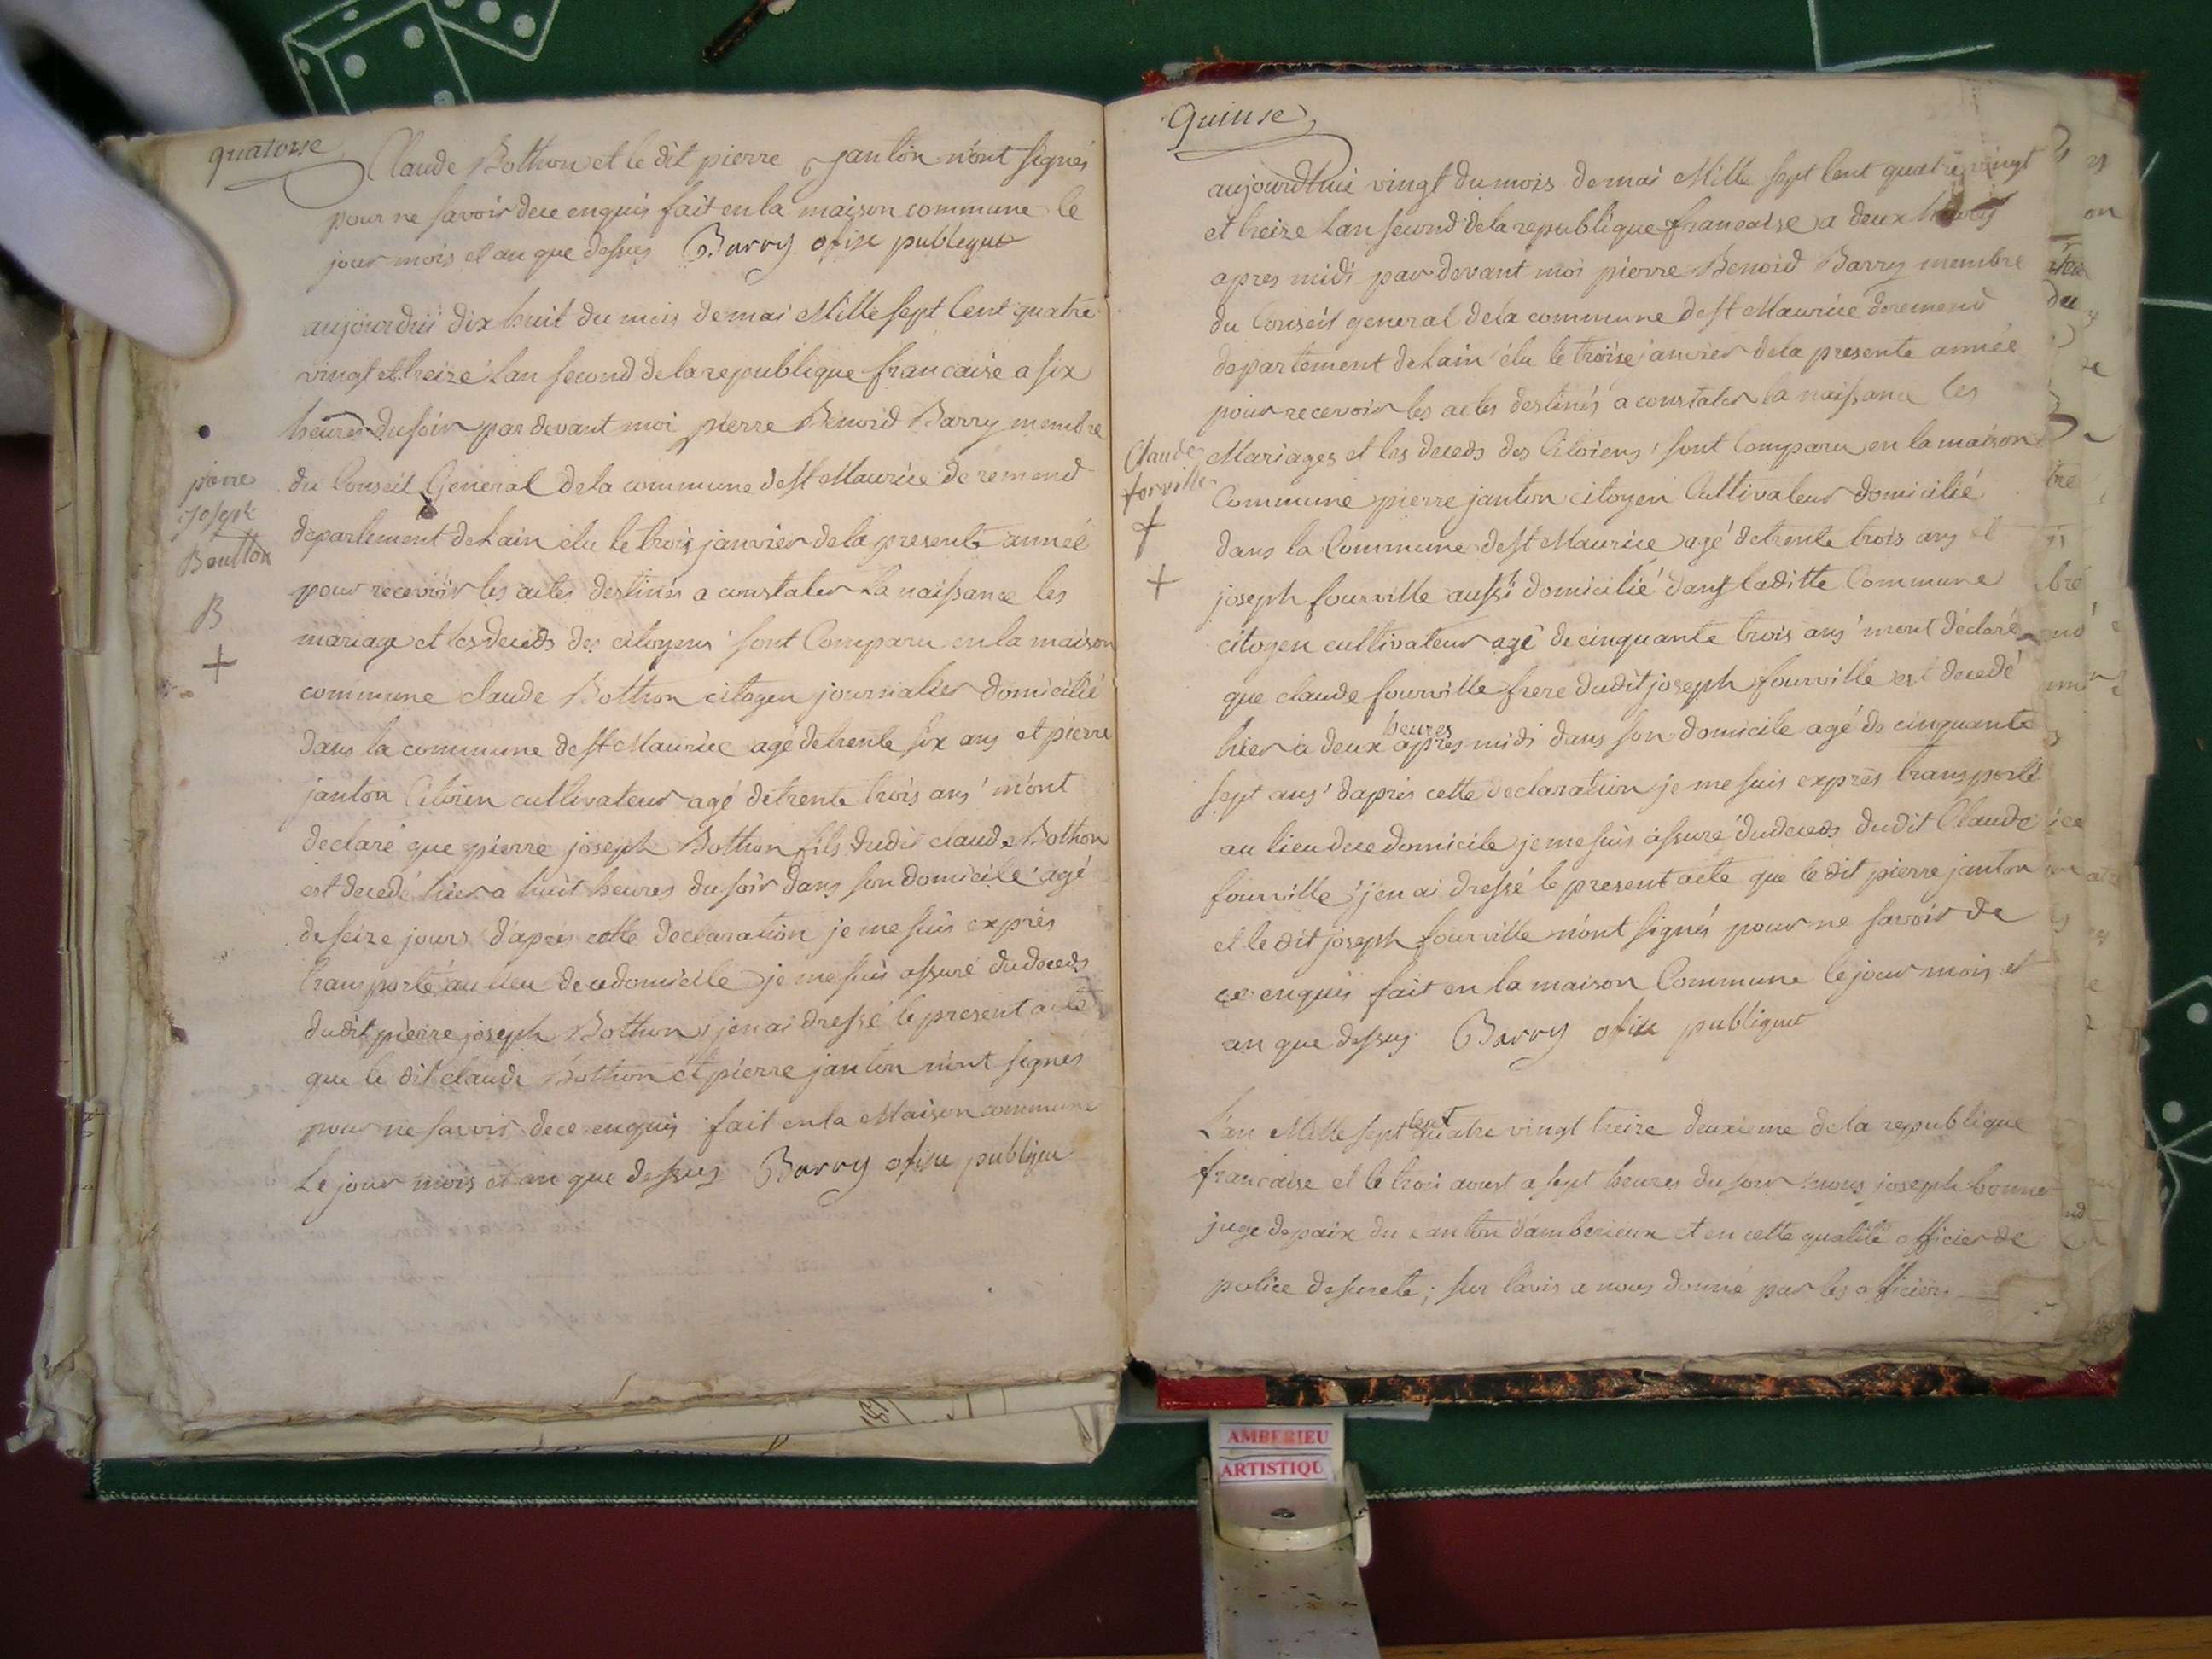 quatorse
Claude Bothon et le dit pierre janton n'ont signés
pour ne savoir de ce enquis fait en la maison commune le
jour mois et an que dessus Barry ofise publique
aujourdhui dix huit du mois de mai Mille sept Cent quatre
vingt et treize Lan second de la republique francaise a six
heures du soir par devant moi pierre Benoid Barry membre
du Conseil General de la commune de st Maurice de remend
departement de Lain elu le trois janvier de la presente année
pour recevoir les actes destinés a constater La naissance les
mariage et les deceds des citoyens sont Comparu en la maison
commune claude Bothon citoyen journalier domicilié
dans la commune de st Maurice agé de trente six ans et pierre
janton Citoien cultivateur agé de trente trois ans m'ont
declaré que pierre joseph Bothon fils dudit claude Bothon
est decedé hier a huit heures du soir dans son domicile agé
de seize jours d'après cette declaration je me suis exprès
transporté au lieu de ce domicile je me suis assuré du deceds
dudit pierre joseph Bothon j'en ai dressé le present acte
que le dit claude Bothon et pierre janton n'ont signés
pour ne savoir de ce enquis fait en la Maison commune
Le jour mois et an que dessus Barry ofise publique
pierre
joseph
Boutton
B
+
Quinse
aujourdhui vingt du mois de mai Mille sept Cent quatre vingt
et treize Lan second de la republique francaise a deux heures
apres midi par devant moi pierre Benoid Barry membre
du Conseil general de la commune de st Maurice de remend
departement de Lain élu le troise janvier de la presente année
pour recevoir les actes destinés a constater la naissance les
Mariages et les deceds des Citoiens sont Comparu en la maison
Commune pierre janton citoyen Cultivateur domicilié
dans la Commune de st Maurice agé de trente trois ans et
joseph fourville aussi domicilié dans laditte Commune
citoyen cultivateur agé de cinquante trois ans m'ont déclaré
que claude fourville frere dudit joseph fourville est decedé
hier a deux heures après midi dans son domicile agé de cinquante
sept ans d'après cette declaration je me suis exprès transporté
au lieu de ce domicile je me suis assuré du deceds dudit Claude
fourville j'en ai dressé le present acte que le dit pierre janton
et le dit joseph fourville n'ont signés pour ne savoir de
ce enquis fait en la maison Commune le jour mois et
an que dessus Barry ofise publique
Claude
forville
+
+
L'an Mille sept Cent quatre vingt treize deuxieme de la republique
francaise et le trois aoust a sept heures du soir nous joseph bonne
juge de paix du canton d'amberieux et en cette qualité officier de
police de sureté ; sur l'avis a nous donné par les officiers
AMBERIEU
ARTISTIQU